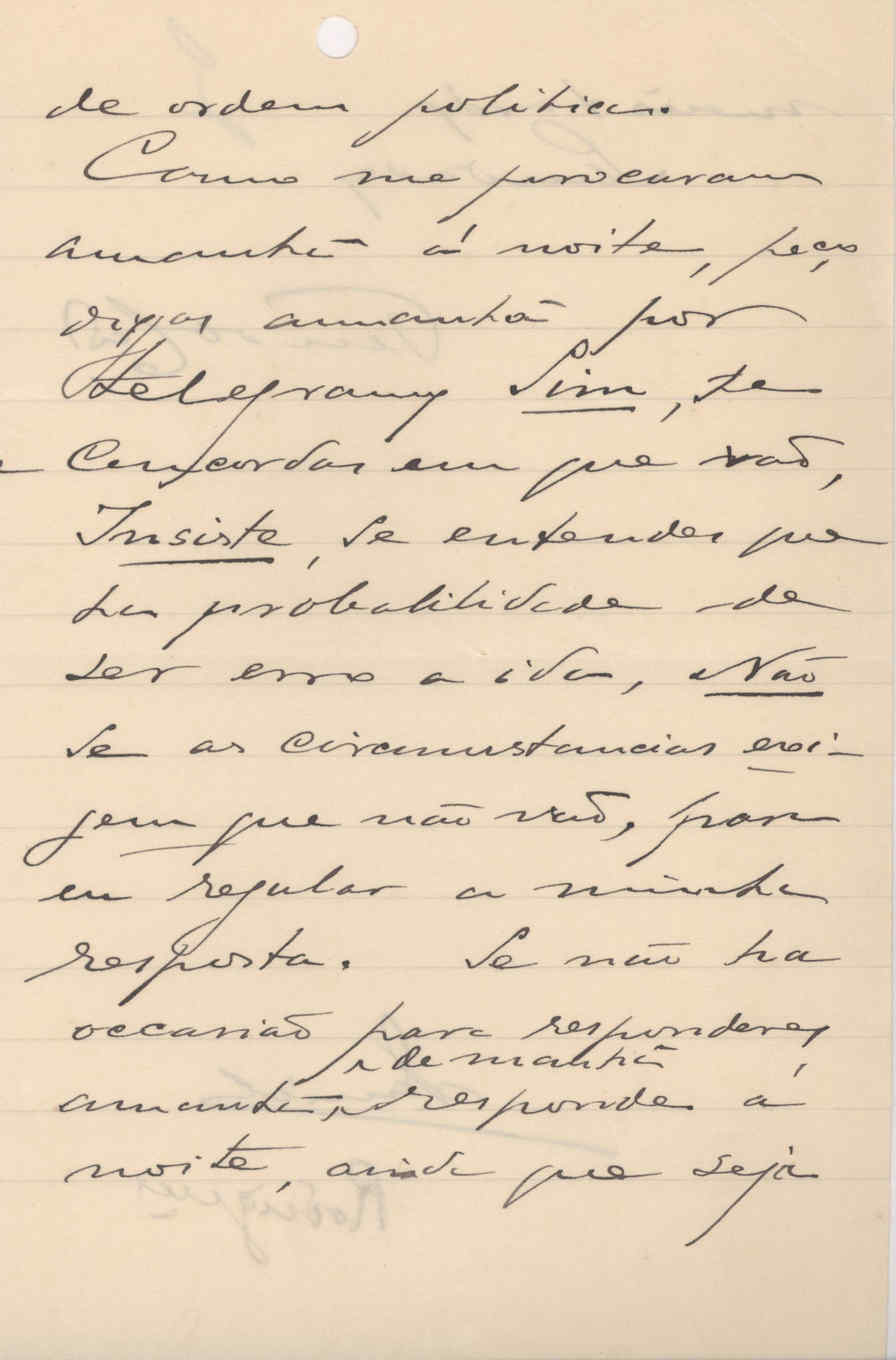 de ordem politica.
Como me procuram
amanhã á noite, peço
digas amanhã por
telegramma Sim, se
Concordas em que vão,
Insiste, se entendes que
ha probabilidade de
ser erro a ida, Não
se as circumstancias exi-
gem que não vão, para
eu regular a minha
resposta. Se não ha
occasião para responderes,
de manhã
amanhã, responde á
noite, ainda que seja